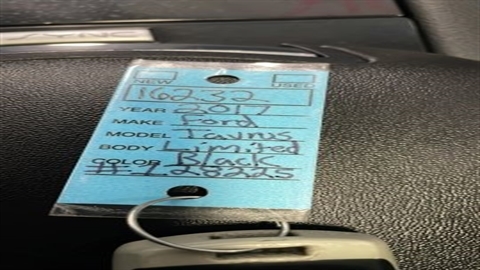 SYNC
NEW USED
16232
YEAR 2017
MAKE Ford
MODEL Taurus
BODY Limited
COLOR Black
#: 128225